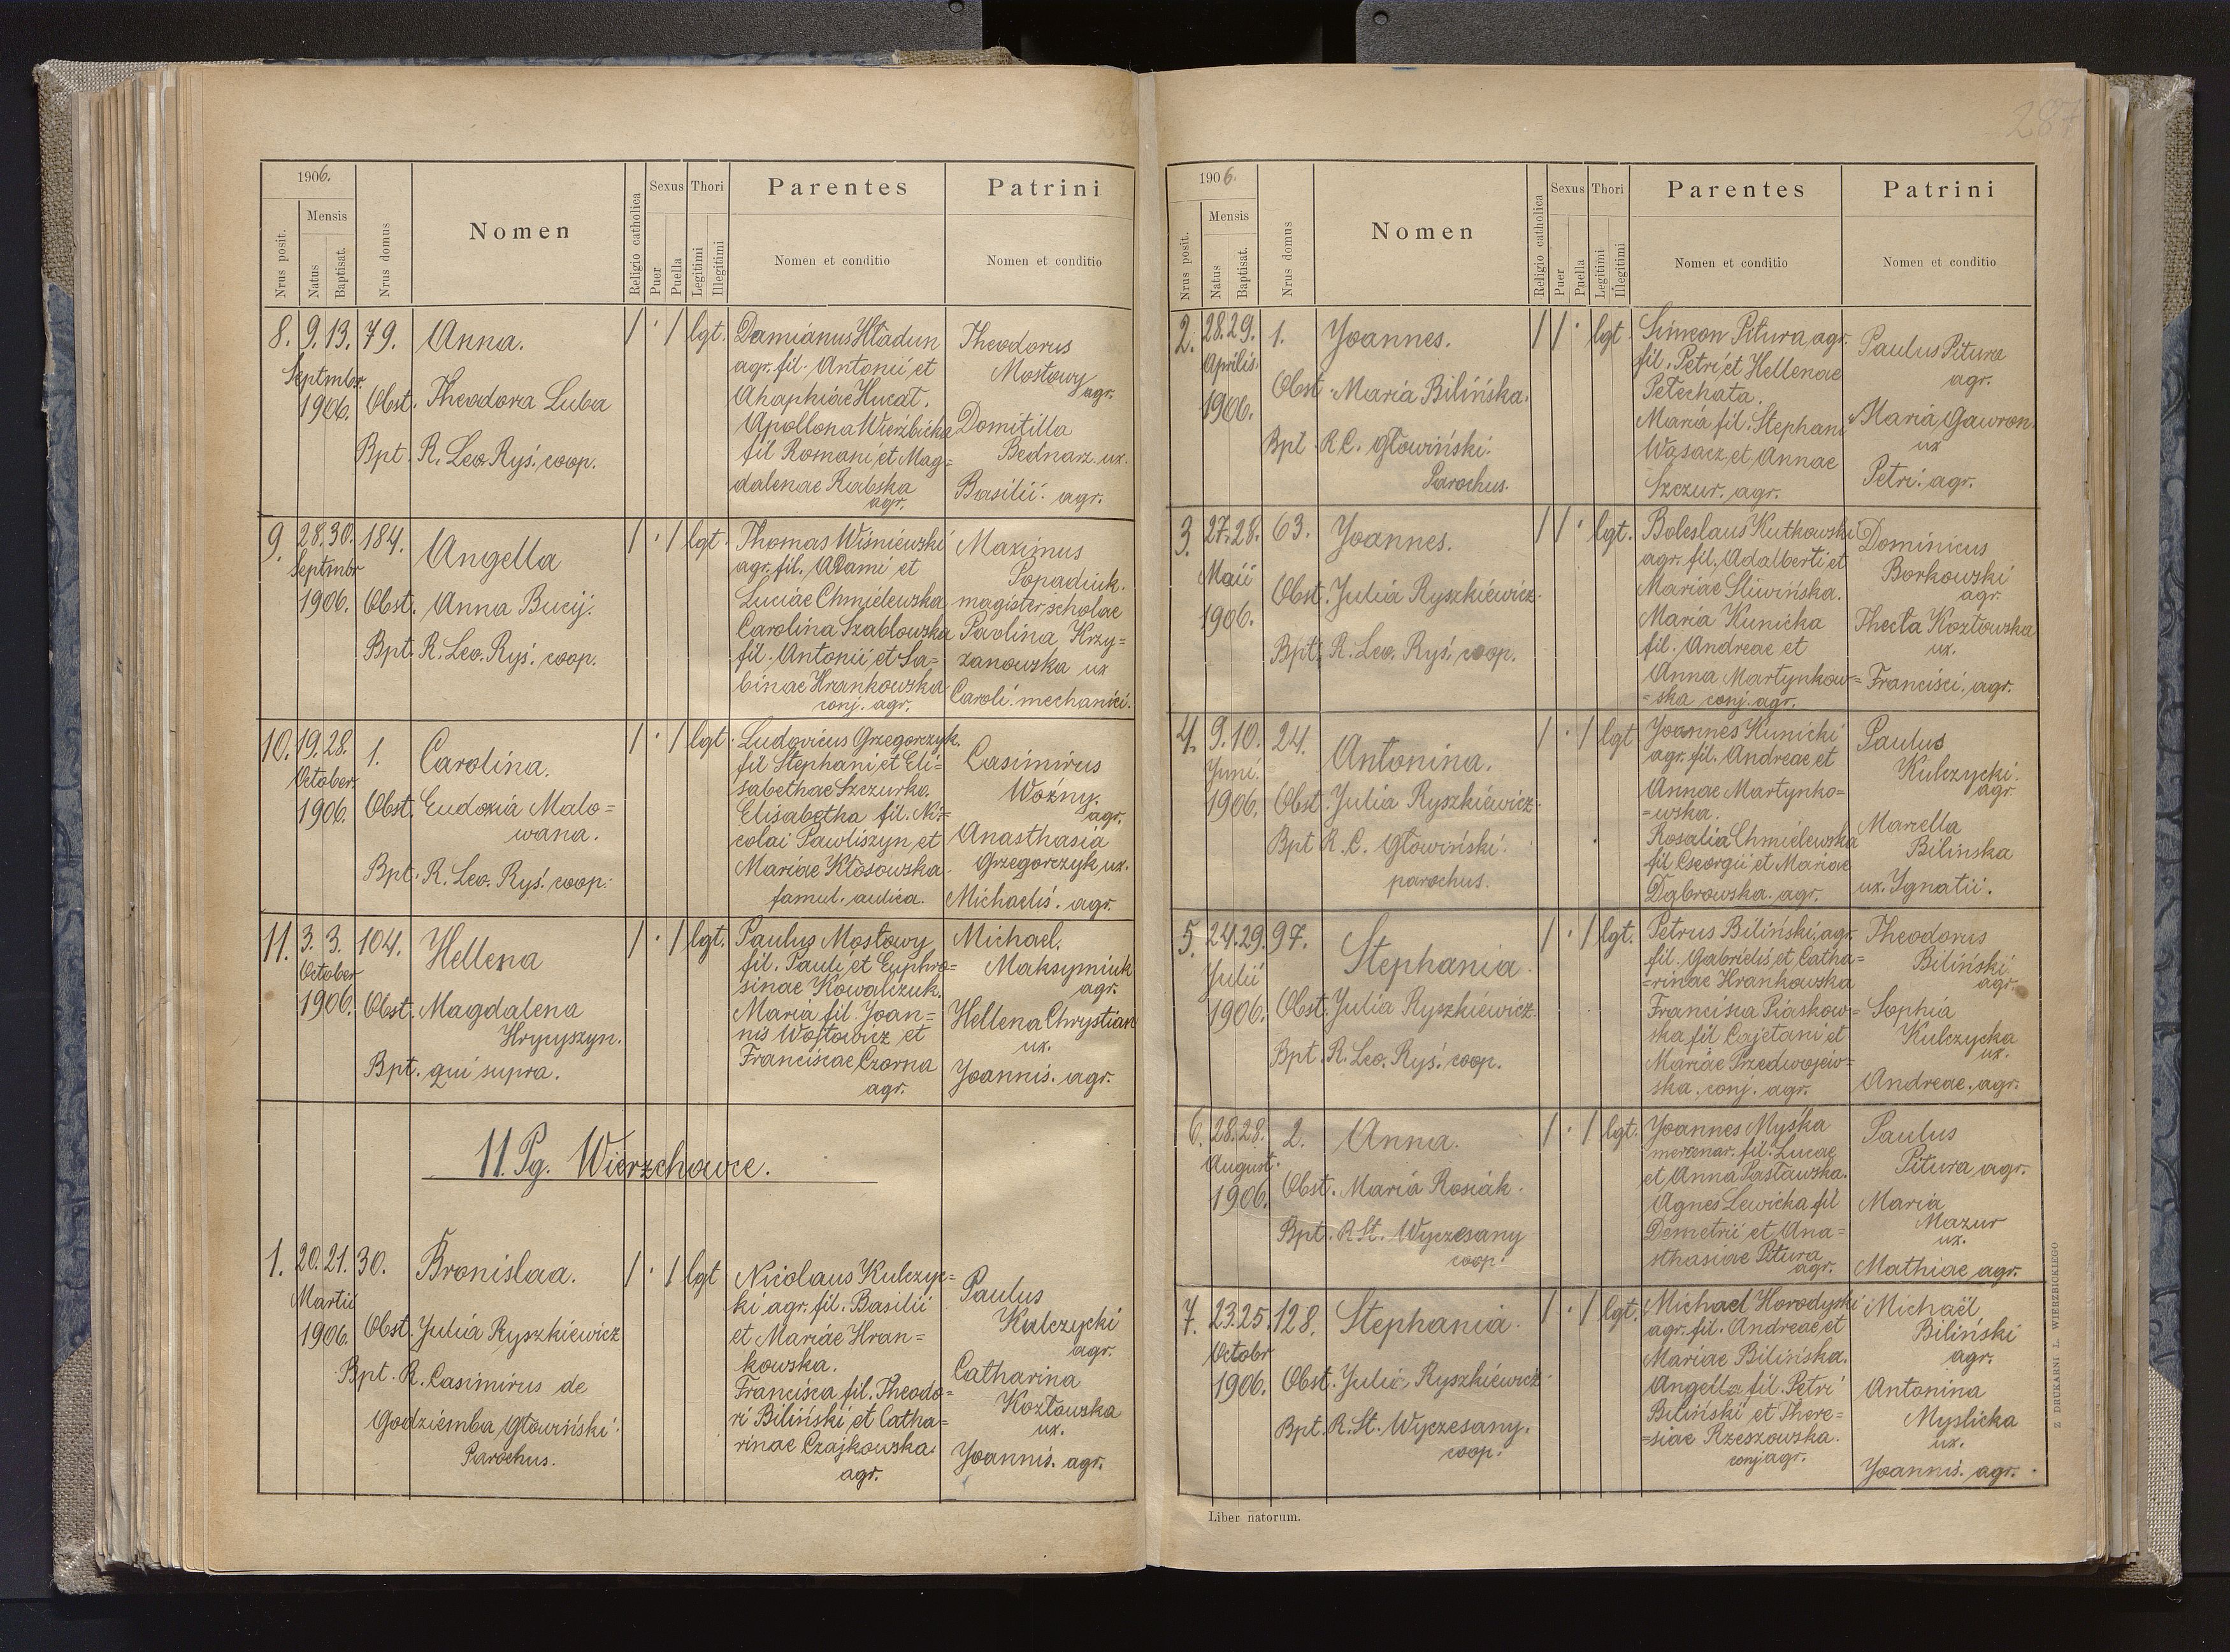 1906.
Nrus posit.
Mensis
Natus
Baptisat.
Nrus domus
Nomen
Religio catholica
Sexus
Puer
Puella
Thori
Legitimi
Illegitimi
Parentes
Nomen et conditio
Patrini
Nomen et conditio
8. 9. 13. 79. Anna. / · / lgt.
Septmbr.
1906. Obst. Theodora Luba
Bpt. R. Leo Ryś. coop.
Damianus Hładun
agr. fil. Antonii et
Ahaphiae Hucat.
Apollona Wierzbicka
fil Romani et Mag=
dalenae Rabska
agr.
Theodorus
Mostowy
agr.
Domitilla
Bednarz. ux.
Basilii. agr.
9. 28. 30. 184. Angella / · / lgt.
Septmbr
1906. Obst. Anna Bucij.
Bpt. R. Leo. Ryś. coop.
Thomas Wisniewski
agr. fil. Adami et
Luciae Chmielewska
Carolina Szablowska
fil. Antonii et Sa=
binae Hrankowska
conj. agr.
Maximus
Popadiuk.
magister scholae
Paolina Krzy=
zanowska ux
Caroli mechanici.
10. 19. 28. 1. Carolina. / · / lgt.
October.
1906. Obst. Eudoxia Malo=
wana.
Bpt. R. Leo. Ryś. coop.
Ludovicus Grzegorczyk.
fil Stephani et Eli=
sabethae Szczurko.
Elisabetha fil. Ni=
colai Pawliszyn et
Mariae Kłosowska.
famul. aulica.
Casimirus
Woźny.
agr.
Anasthasia
Grzegorczyk ux.
Michaelis. agr.
11. 3. 3. 104. Hellena / · / lgt.
October
1906. Obst. Magdalena
Hrycyszyn.
Bpt. qui supra.
Paulus Mostowy
fil. Pauli et Euphro=
sinae Kowalczuk.
Maria fil. Joan=
nis Wojtowicz et
Franciscae Czorna
agr.
Michael.
Maksymiuk
agr.
Hellena Chrystian
ux.
Joannis. agr.
11. Pg. Wierzchowce.
1. 20. 21. 30. Bronislaa. / · / lgt
Martii
1906. Obst. Julia Ryszkiewicz
Bpt. R. Casimirus de
Godziemba Głowiński.
Parochus.
Nicolaus Kulczyc=
ki agr. fil. Basilii
et Mariae Hran=
kowska.
Francisca fil. Theodo=
ri Biliński et Catha=
rinae Czajkowska.
agr.
Paulus
Kulczycki
agr.
Catharina
Kozłowska
ux.
Joannis. agr.
287
1906.
Nrus posit.
Mensis
Natus
Baptisat.
Nrus domus
Nomen
Religio catholica
Sexus
Puer
Puella
Thori
Legitimi
Illegitimi
Parentes
Nomen et conditio
Patrini
Nomen et conditio
2. 28. 29. 1. Joannes. / / · lgt
Aprilis.
1906. Obst. Maria Bilińska.
Bpt. R C. Głowiński.
Parochus.
Simeon Pitura, agr.
fil. Petri et Hellenae
Petechata.
Maria fil. Stephani
Wąsacz, et Annae
Szczur. agr.
Paulus Pitura
agr.
Maria Gawron.
ux
Petri. agr.
3. 27. 28. 63. Joannes. / / · lgt.
Maii
1906. Obst. Julia Ryszkiewicz.
Bpt. R. Leo. Ryś. coop.
Boleslaus Kutkowski
agr. fil. Adalberti et
Mariae Sliwińska.
Maria Kunicka
fil. Andreae et
Anna Martynkow=
=ska conj. agr.
Dominicus
Borkowski
agr.
Thecla Kozłowska
ux.
Francisci. agr.
4. 9. 10. 24. Antonina. / · / lgt
Juni.
1906. Obst. Julia Ryszkiewicz.
Bpt R. C. Głowiński.
parochus.
Joannes Kunicki
agr. fil. Andreae et
Annae Martynko=
=wska.
Rosalia Chmielewska
fil Georgii et Mariae
Dąbrowska. agr.
Paulus
Kulczycki.
agr
Marcella
Bilinska
ux. Ignatii.
5. 24. 29. 97. Stephania. / · / lgt.
Julii
1906. Obst. Julia Ryszkiewicz.
Bpt. R. Leo. Ryś. coop.
Petrus Biliński, agr.
fil. Gabrielis et Catha=
=rinae Hrankowska
Francisca Piaskow=
ska fil Cajetani et
Mariae Przedwojew=
ska. conj. agr.
Theodorus
Biliński
agr.
Sophia
Kulczycka
ux.
Andreae. agr.
6. 28. 28. 2. Anna. / · / lgt.
August.
1906. Obst. Maria Rosiak.
Bpt. R St. Wyczesany
coop.
Joannes Myśka
mercenar. fil. Lucae
et Anna Pasławska.
Agnes Lewicka fil
Demetrii et Ana=
sthasiae Pitura
agr.
Paulus
Pitura agr.
Maria
Mazur
ux.
Mathiae agr.
7. 23. 25. 128. Stephania. / · / lgt.
Octobr
1906. Obst. Julia Ryszkiewicz.
Bpt. R. St. Wyczesany.
coop.
Michael Horodyski
agr. fil. Andreae et
Mariae Bilińska.
Angella fil. Petri
Biliński et There=
=siae Rzeszowska.
conj agr.
Michaël
Biliński
agr.
Antonina
Myslicka
ux.
Joannis. agr.
Liber natorum.
Z DRUKARNI L. WIERZBICKIEGO